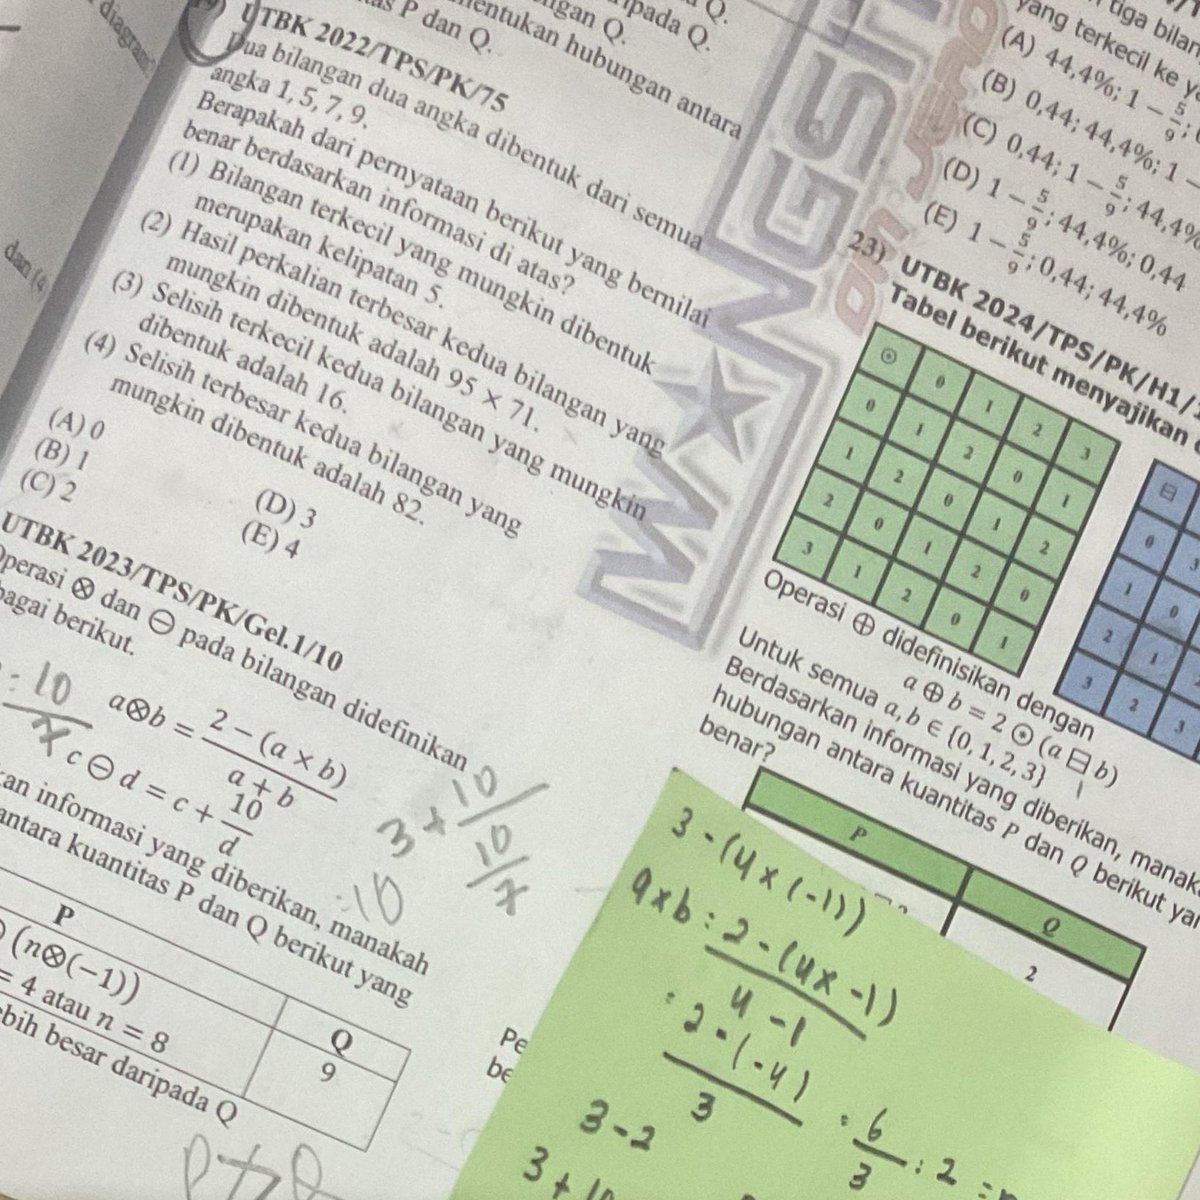 diagram
dan (4
P dan Q.
mentukan hubungan antara
ngan Q.
ipada Q.
Q.
UTBK 2022/TPS/PK/75
Dua bilangan dua angka dibentuk dari semua
angka 1, 5, 7, 9.
Berapakah dari pernyataan berikut yang bernilai
benar berdasarkan informasi di atas?
(1) Bilangan terkecil yang mungkin dibentuk
merupakan kelipatan 5.
(2) Hasil perkalian terbesar kedua bilangan yang
mungkin dibentuk adalah 95 × 71.
(3) Selisih terkecil kedua bilangan yang mungkin
dibentuk adalah 16.
(4) Selisih terbesar kedua bilangan yang
mungkin dibentuk adalah 82.
(A) 0
(B) 1
(C) 2
(D) 3
(E) 4
UTBK 2023/TPS/PK/Gel.1/10
Operasi ⊗ dan ⊖ pada bilangan didefinikan
bagai berikut.
a⊗b = 2 − (a × b) / a + b
c ⊖ d = c + 10/d
= 10
7
3 + 10
10
7
= 10
kan informasi yang diberikan, manakah
antara kuantitas P dan Q berikut yang
P
Q
(n⊗(−1))
= 4 atau n = 8
9
ebih besar daripada Q
P + Q
tiga bilan
yang terkecil ke y
(A) 44,4%; 1 − 5/9;
(B) 0,44; 44,4%; 1 −
(C) 0,44; 1 − 5/9; 44,4%
(D) 1 − 5/9; 44,4%; 0,44
(E) 1 − 5/9; 0,44; 44,4%
23) UTBK 2024/TPS/PK/H1/
Tabel berikut menyajikan
⊙ 0 1 2 3
0 1 2 0 1
1 2 0 1 2
2 0 1 2 0
3 1 2 0 1
⊟
0 3
1 0
2 1 2
3 2 3
Operasi ⊕ didefinisikan dengan
a ⊕ b = 2 ⊙ (a ⊟ b)
Untuk semua a, b ∈ {0, 1, 2, 3}
Berdasarkan informasi yang diberikan, manak
hubungan antara kuantitas P dan Q berikut ya
benar?
P
Q
2
Pe
be
WANGSIT
3 - (4 × (-1))
a × b : 2 - (4 × -1)
4 - 1
: 2 - (-4)
3
= 6
3
: 2 =
3 - 2
3 + 10